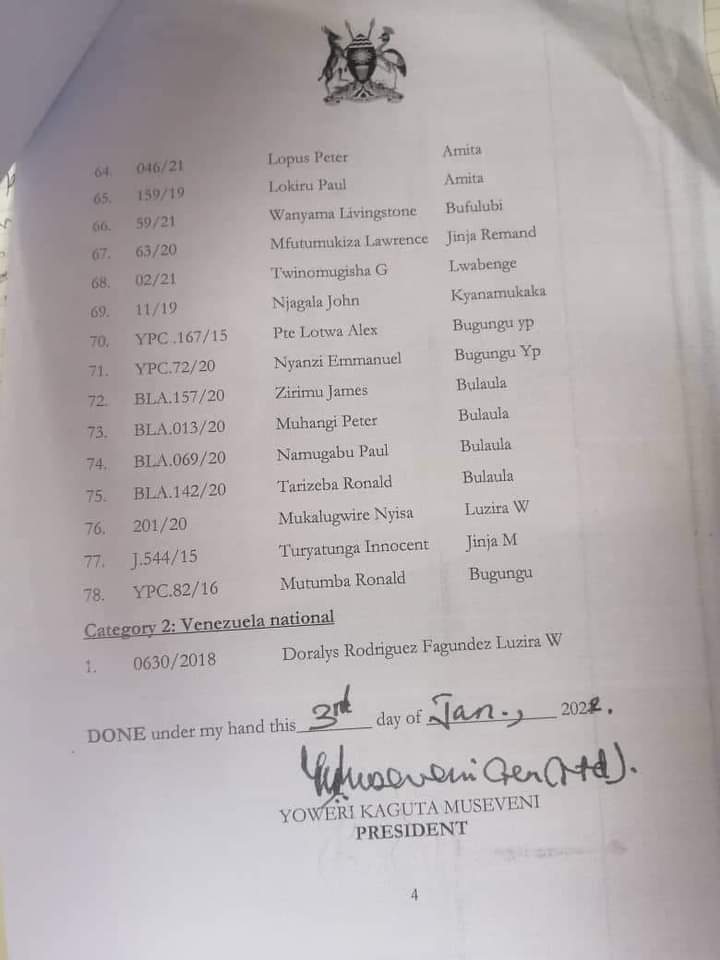 64. 046/21 Lopus Peter Amita
65. 159/19 Lokiru Paul Amita
66. 59/21 Wanyama Livingstone Bufulubi
67. 63/20 Mfutumukiza Lawrence Jinja Remand
68. 02/21 Twinomugisha G Lwabenge
69. 11/19 Njagala John Kyanamukaka
70. YPC .167/15 Pte Lotwa Alex Bugungu yp
71. YPC.72/20 Nyanzi Emmanuel Bugungu Yp
72. BLA.157/20 Zirimu James Bulaula
73. BLA.013/20 Muhangi Peter Bulaula
74. BLA.069/20 Namugabu Paul Bulaula
75. BLA.142/20 Tarizeba Ronald Bulaula
76. 201/20 Mukalugwire Nyisa Luzira W
77. J.544/15 Turyatunga Innocent Jinja M
78. YPC.82/16 Mutumba Ronald Bugungu
Category 2: Venezuela national
1. 0630/2018 Doralys Rodriguez Fagundez Luzira W
DONE under my hand this 3rd day of Jan., 2022.
YMuseveni Gen (rtd).
YOWERI KAGUTA MUSEVENI
PRESIDENT
4